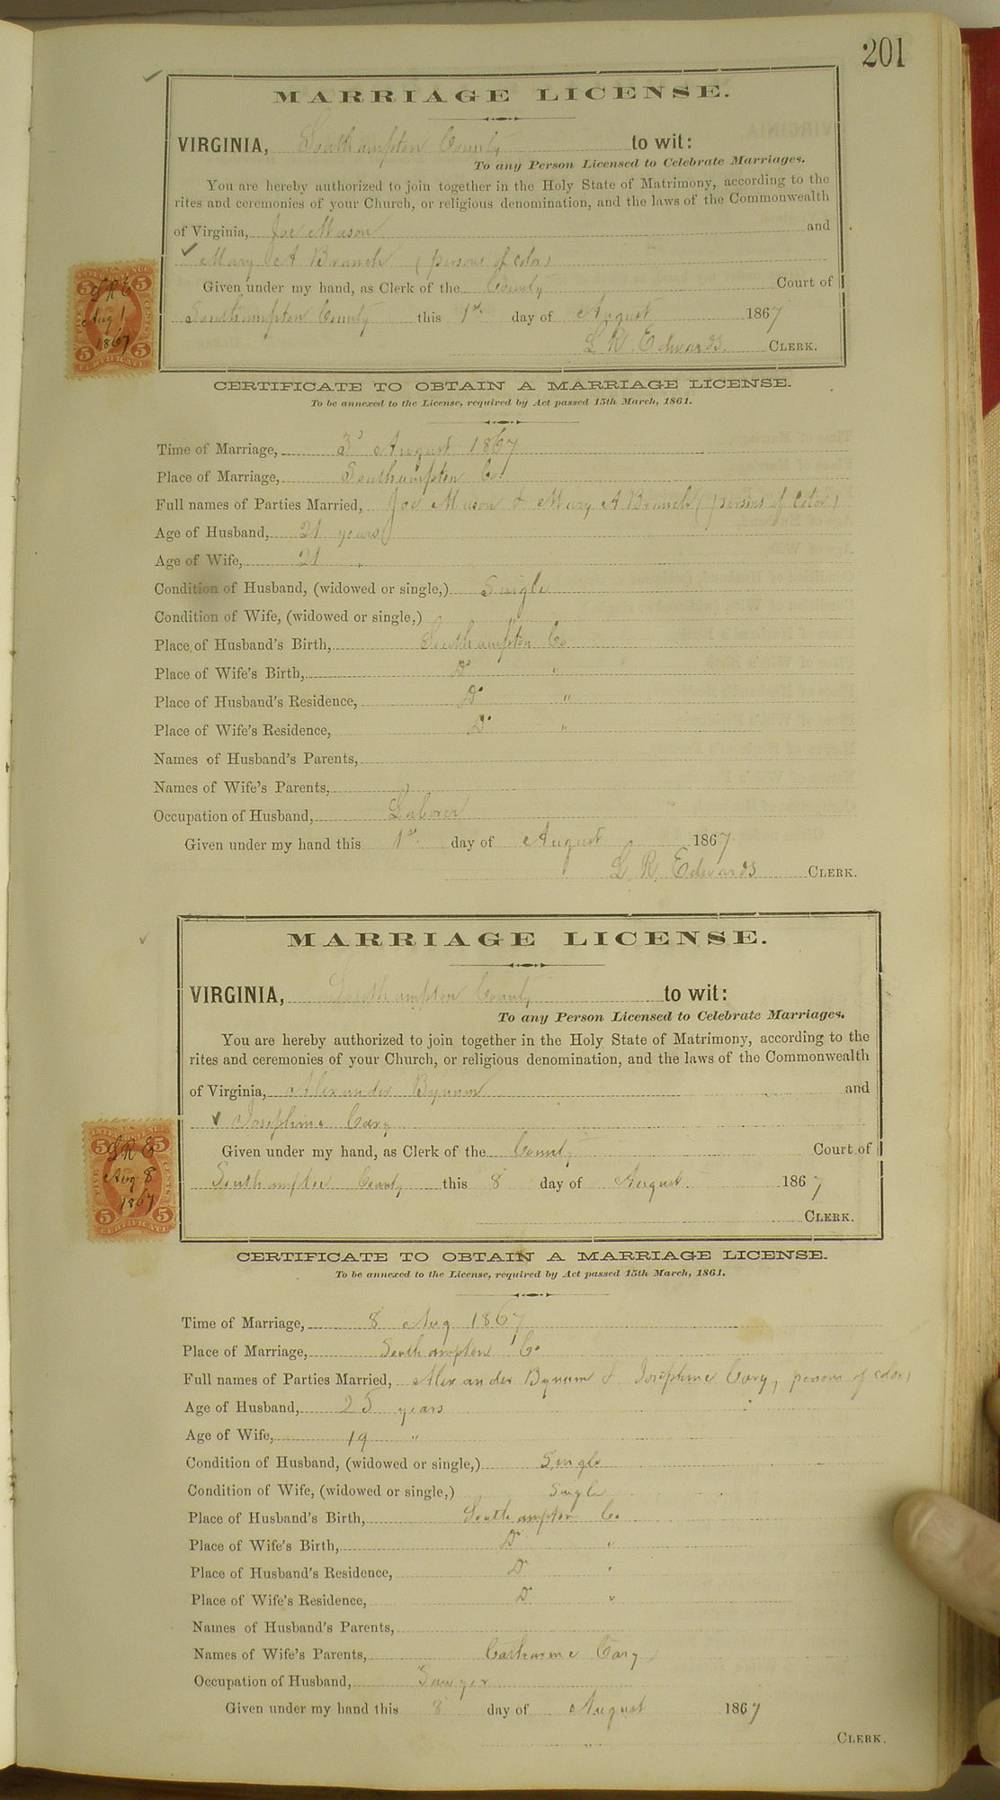 201
MARRIAGE LICENSE.
VIRGINIA, Southampton County to wit:
To any Person Licensed to Celebrate Marriages.
You are hereby authorized to join together in the Holy State of Matrimony, according to the
rites and ceremonies of your Church, or religious denomination, and the laws of the Commonwealth
of Virginia, Joe Mason and
Mary A Branch (persons of color)
Given under my hand, as Clerk of the County Court of
Southampton County this 1st day of August 1867
L R. Edwards. CLERK.
5 5
L R E
Aug 1
1867
5 5
CERTIFICATE
CERTIFICATE TO OBTAIN A MARRIAGE LICENSE.
To be annexed to the License, required by Act passed 15th March, 1861.
Time of Marriage, 3d August 1867
Place of Marriage, Southampton Co.
Full names of Parties Married, Joe Mason & Mary A Branch (persons of color)
Age of Husband, 21 years
Age of Wife, 21 "
Condition of Husband, (widowed or single,) Single
Condition of Wife, (widowed or single,) "
Place of Husband's Birth, Southampton Co
Place of Wife's Birth, Do "
Place of Husband's Residence, Do "
Place of Wife's Residence, Do "
Names of Husband's Parents,
Names of Wife's Parents,
Occupation of Husband, Laborer
Given under my hand this 1st day of August 1867
L. R. Edwards CLERK.
MARRIAGE LICENSE.
VIRGINIA, Southampton County to wit:
To any Person Licensed to Celebrate Marriages.
You are hereby authorized to join together in the Holy State of Matrimony, according to the
rites and ceremonies of your Church, or religious denomination, and the laws of the Commonwealth
of Virginia, Alexander Bynum and
Josephine Cary
Given under my hand, as Clerk of the County Court of
Southampton County this 8 day of August 1867
CLERK.
5 5
L R E
Aug 8
1867
5 5
CERTIFICATE
CERTIFICATE TO OBTAIN A MARRIAGE LICENSE.
To be annexed to the License, required by Act passed 15th March, 1861.
Time of Marriage, 8 Aug 1867
Place of Marriage, Southampton Co
Full names of Parties Married, Alexander Bynum & Josephine Cary, persons of color)
Age of Husband, 25 years
Age of Wife, 19 "
Condition of Husband, (widowed or single,) Single
Condition of Wife, (widowed or single,) Single
Place of Husband's Birth, Southampton Co
Place of Wife's Birth, Do "
Place of Husband's Residence, Do "
Place of Wife's Residence, Do "
Names of Husband's Parents,
Names of Wife's Parents, Catharine Cary
Occupation of Husband, Sawyer
Given under my hand this 8 day of August 1867
CLERK.